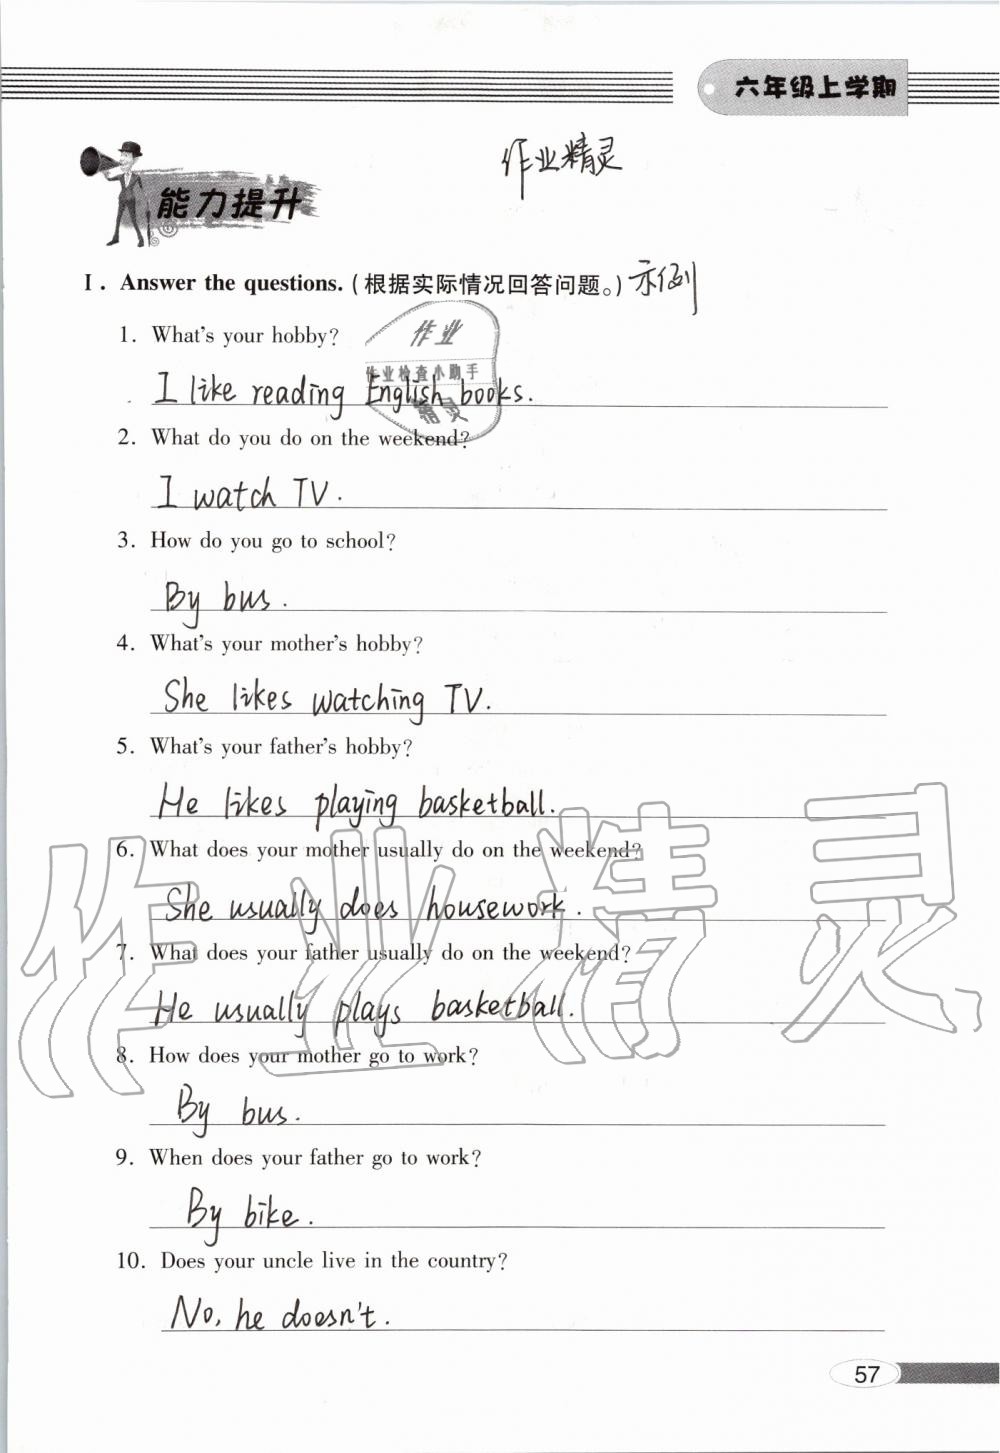 六年级上学期
作业精灵
能力提升
I. Answer the questions. (根据实际情况回答问题。) 示例
1. What's your hobby?
作业
作业检查小助手
精灵
I like reading English books.
2. What do you do on the weekend?
I watch TV.
3. How do you go to school?
By bus.
4. What's your mother's hobby?
She likes watching TV.
5. What's your father's hobby?
He likes playing basketball.
6. What does your mother usually do on the weekend?
She usually does housework.
作业精灵
7. What does your father usually do on the weekend?
He usually plays basketball.
8. How does your mother go to work?
By bus.
9. When does your father go to work?
By bike.
10. Does your uncle live in the country?
No, he doesn't.
57